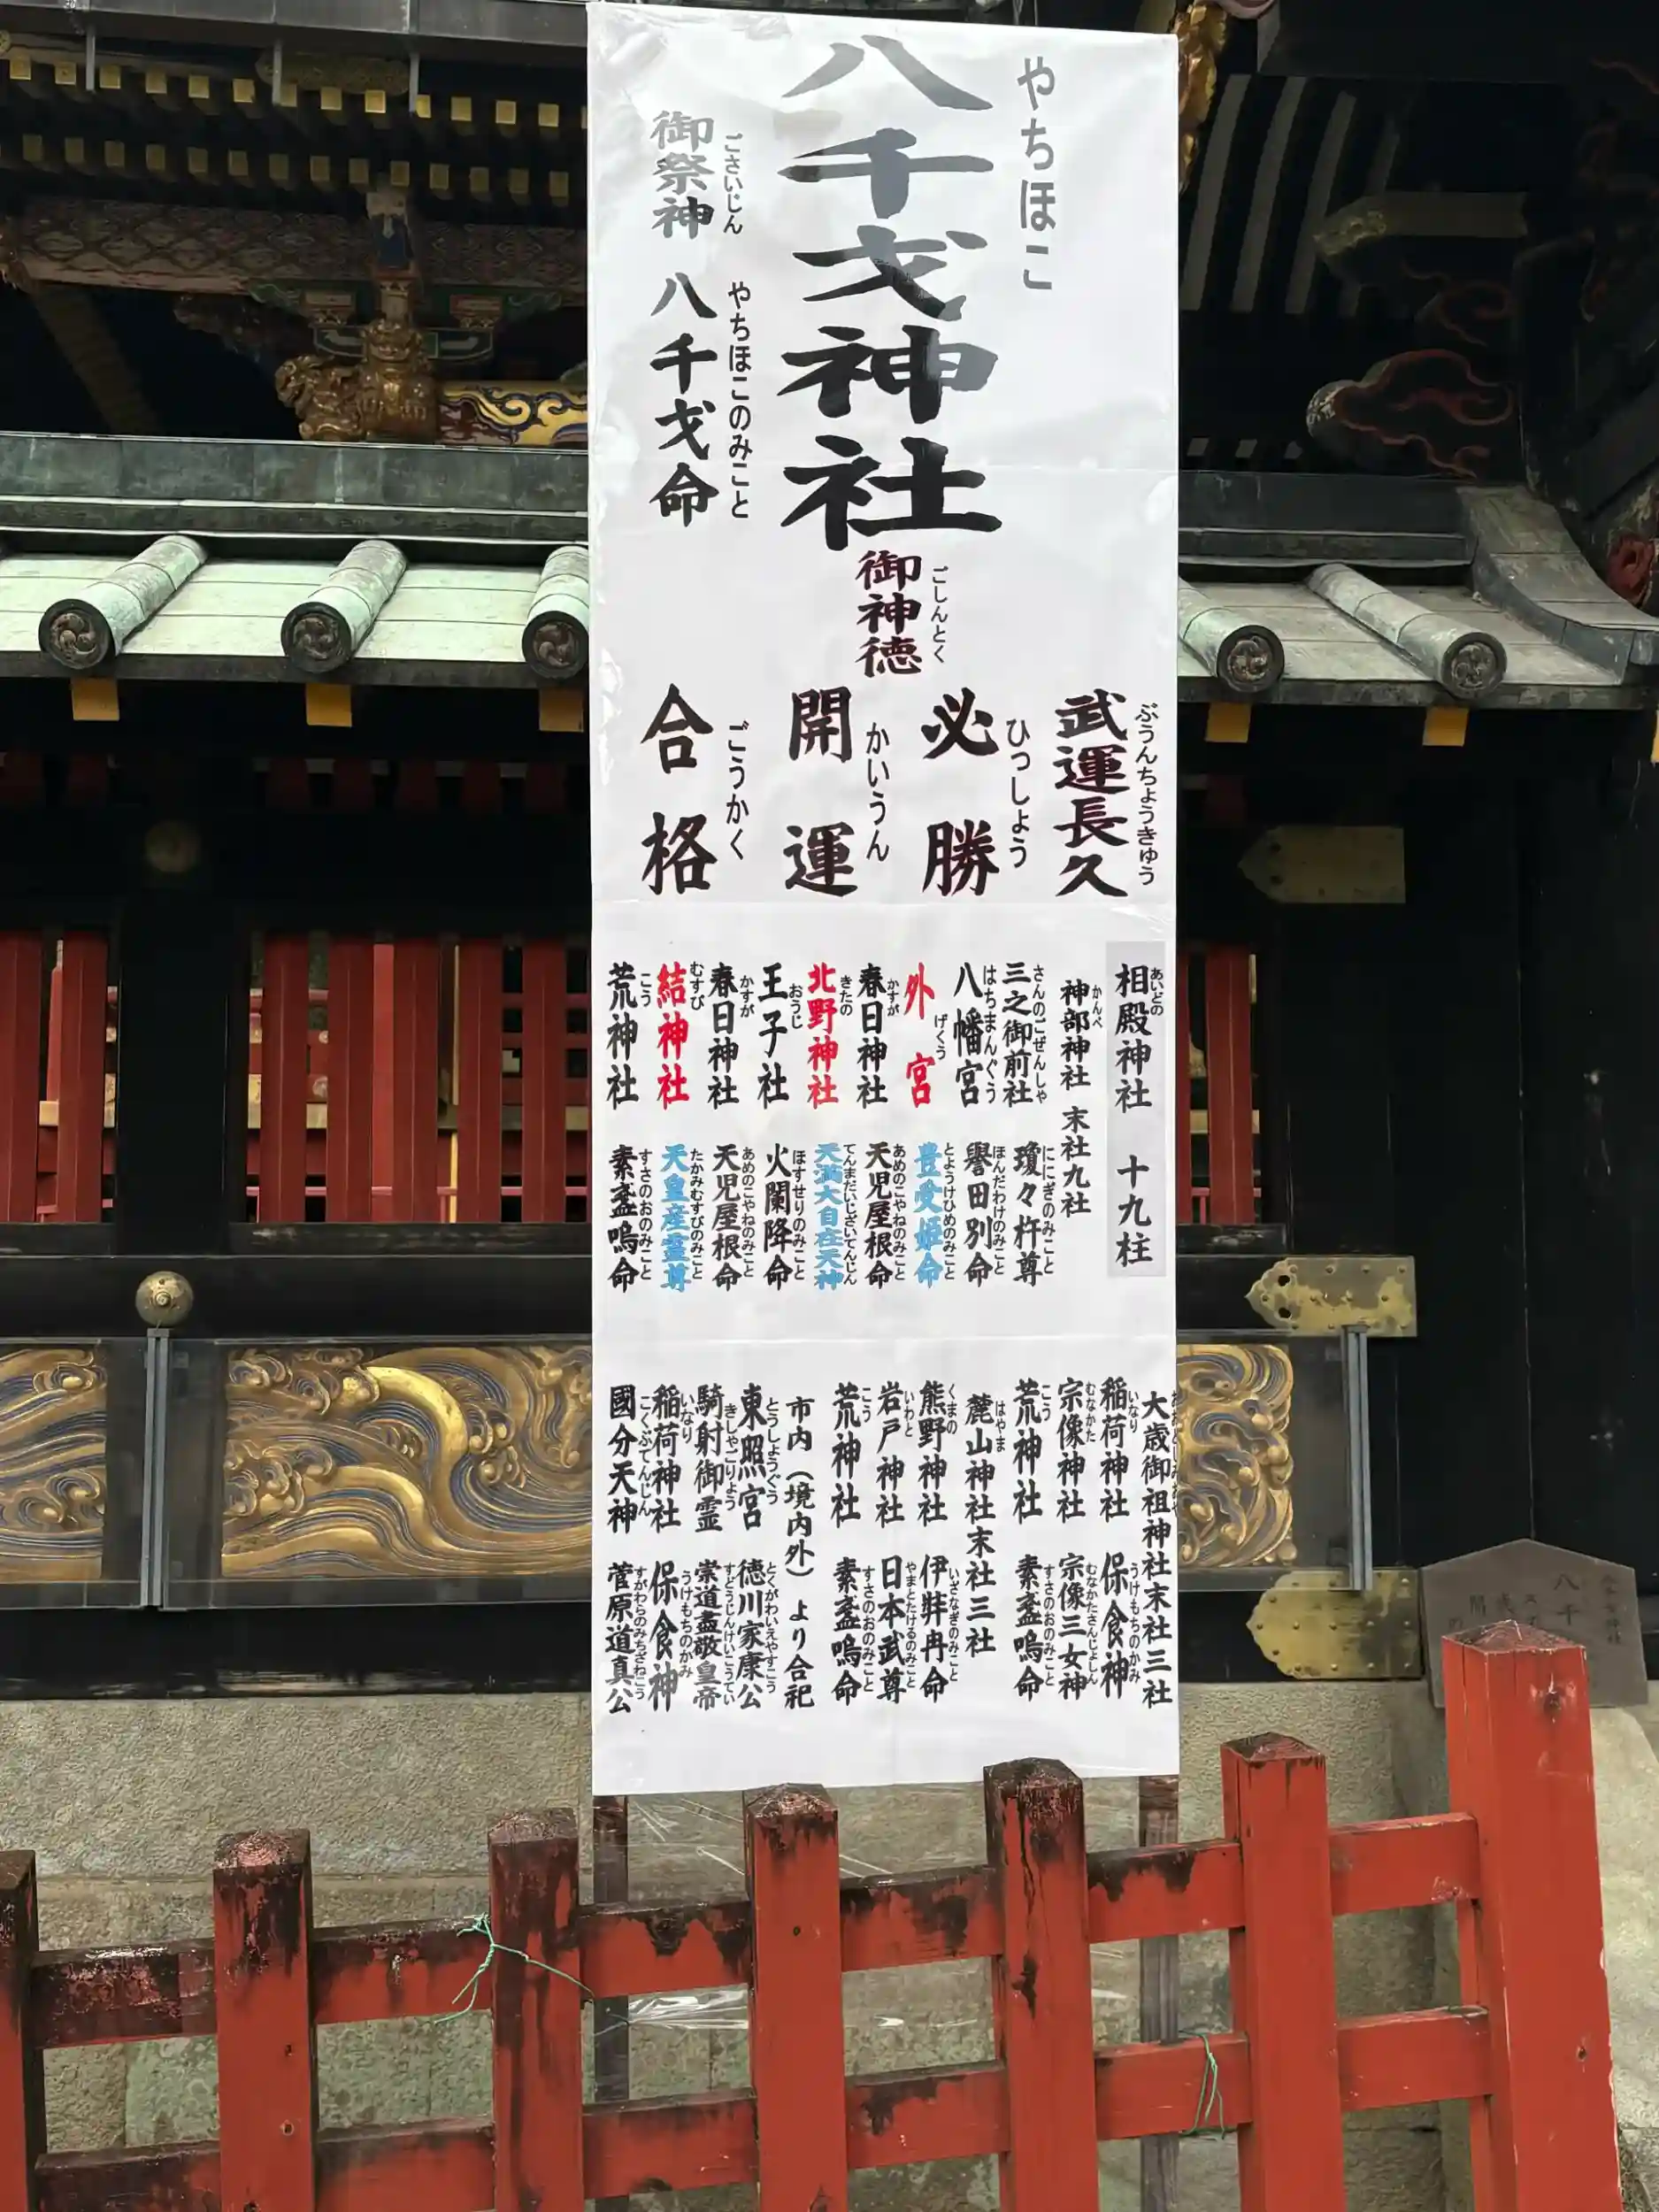 やちほこ
八千戈神社
ごさいじん
御祭神
やちほこのみこと
八千戈命
ごしんとく
御神徳
ぶうんちょうきゅう
武運長久
ひっしょう
必勝
かいうん
開運
ごうかく
合格
あいどの
相殿神社 十九柱
かんべ
神部神社 末社九社
さんのごぜんしゃ
三之御前社
ににぎのみこと
瓊々杵尊
はちまんぐう
八幡宮
ほんだわけのみこと
譽田別命
げくう
外宮
とようけひめのみこと
豊受姫命
かすが
春日神社
あめのこやねのみこと
天児屋根命
きたの
北野神社
てんまだいじざいてんじん
天満大自在天神
おうじ
王子社
ほすせりのみこと
火闌降命
かすが
春日神社
あめのこやねのみこと
天児屋根命
むすび
結神社
たかみむすびのみこと
天皇産霊尊
こう
荒神社
すさのおのみこと
素盞嗚命
大歳御祖神社末社三社
いなり
稲荷神社
うけもちのかみ
保食神
むなかた
宗像神社
むなかたさんじょしん
宗像三女神
こう
荒神社
すさのおのみこと
素盞嗚命
はやま
麓山神社末社三社
くまの
熊野神社
いざなぎのみこと
伊弉冉命
いわと
岩戸神社
やまとたけるのみこと
日本武尊
こう
荒神社
すさのおのみこと
素盞嗚命
市内（境内外）より合祀
とうしょうぐう
東照宮
とくがわいえやすこう
徳川家康公
きしゃごりょう
騎射御霊
すどうじんけいこうてい
崇道盡敬皇帝
いなり
稲荷神社
うけもちのかみ
保食神
こくぶてんじん
國分天神
すがわらのみちざねこう
菅原道真公
八千